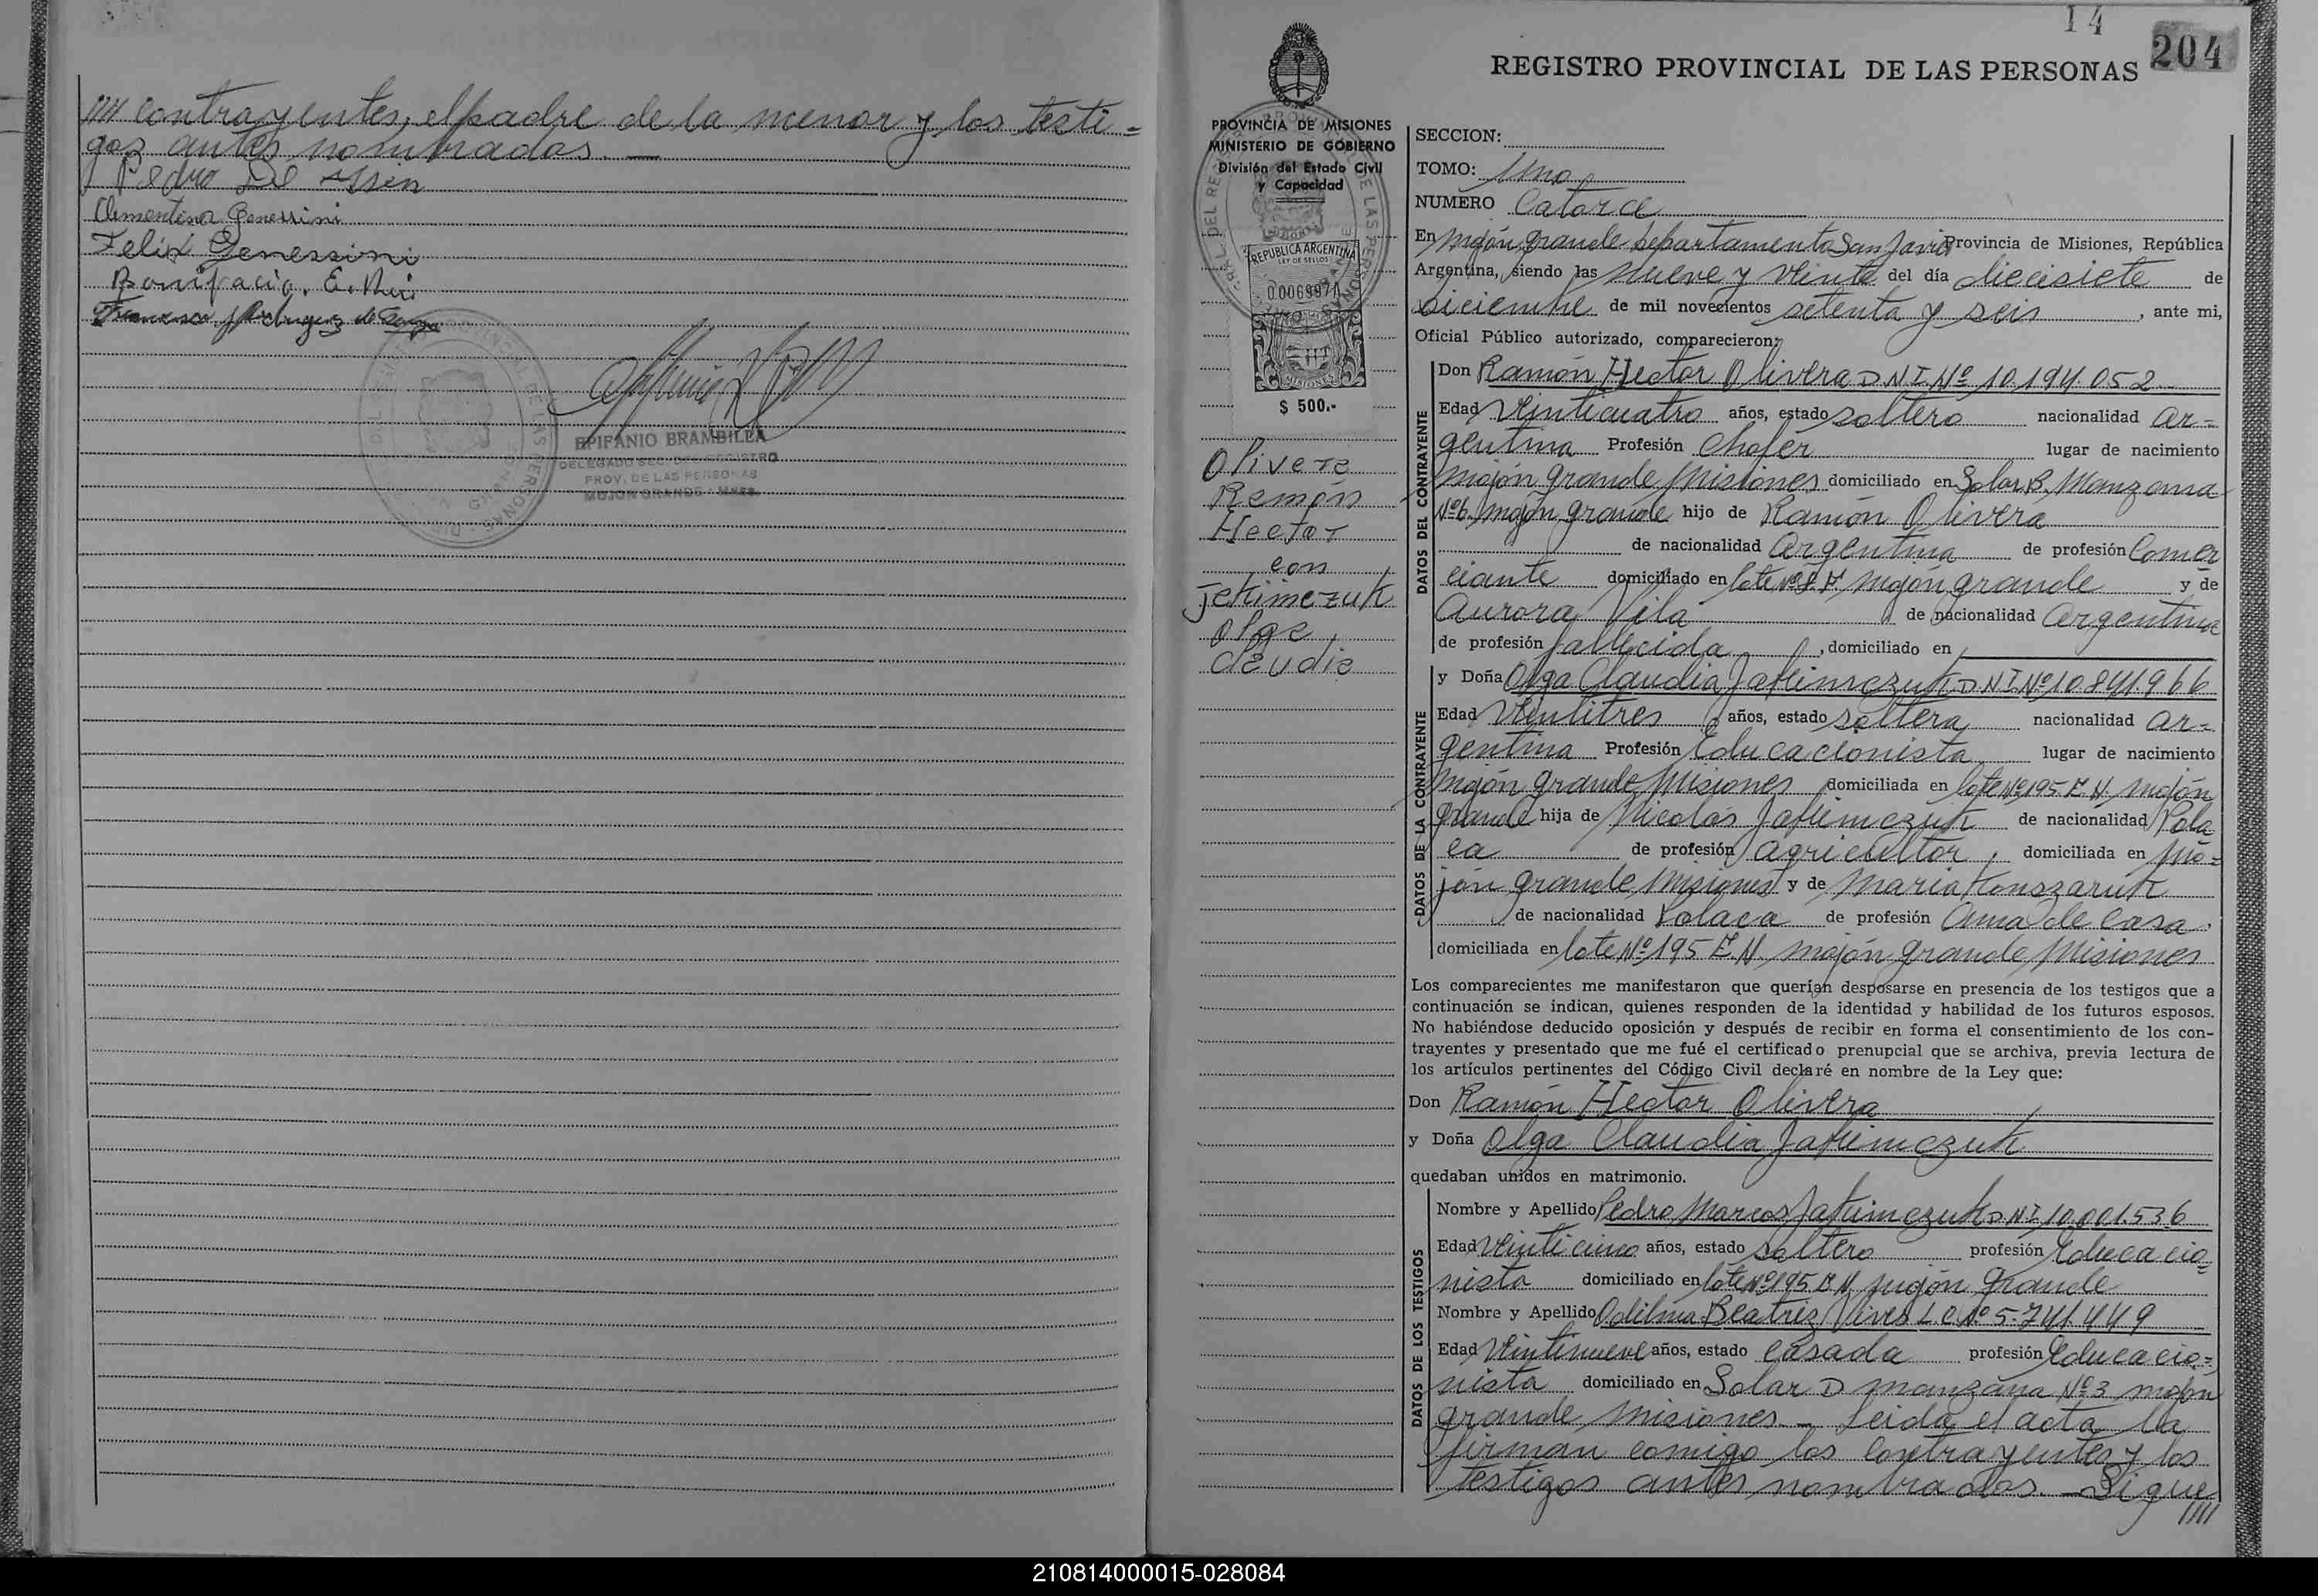 //// contrayentes, el padre de la menor y los testi=
gos antes nombrados. —
Pedro De
Clementina Genessini
Felix Genessini
Bonifacio. E.
Francisco
EPIFANIO BRAMBILLA
DELEGADO SEC. DEL REGISTRO
PROV. DE LAS PERSONAS
MOJON GRANDE - MNES.
14
204
REGISTRO PROVINCIAL DE LAS PERSONAS
PROVINCIA DE MISIONES
MINISTERIO DE GOBIERNO
División del Estado Civil
y Capacidad
REPUBLICA ARGENTINA
LEY DE SELLOS
MISIONES
$ 500.-
Olivera
Ramón
Hector
con
Jakimczuk
Olga
Claudia
SECCION:
TOMO: Uno
NUMERO Catorce
En Mojón grande Departamento San Javier Provincia de Misiones, República
Argentina, siendo las nueve y veinte del día diecisiete de
Diciembre de mil novecientos setenta y seis, ante mi,
Oficial Público autorizado, comparecieron:
DATOS DEL CONTRAYENTE
Don Ramón Hector Olivera D N I. Nº 10.194.052
Edad Veinticuatro años, estado soltero nacionalidad ar=
gentina Profesión Chofer lugar de nacimiento
Mojón grande Misiones domiciliado en Solar B. Manzana
Nº6. Mojón grande hijo de Ramón Olivera
de nacionalidad Argentina de profesión Comer
ciante domiciliado en lote Mojón grande y de
Aurora Vila de nacionalidad Argentina
de profesión fallecida, domiciliado en
DATOS DE LA CONTRAYENTE
y Doña Olga Claudia Jakimczuk D N I. Nº 10.841.966
Edad Veintitres años, estado soltera nacionalidad ar=
gentina Profesión Educacionista lugar de nacimiento
Mojón grande Misiones domiciliada en lote Nº 195 E. N. Mojón
grande hija de Nicolás Jakimczuk de nacionalidad Pola
ca de profesión Agricultor, domiciliada en Mo=
jón grande Misiones y de Maria Konszaruk
de nacionalidad Polaca de profesión Ama de Casa.
domiciliada en lote Nº 195 E. N. Mojón grande Misiones
Los comparecientes me manifestaron que querían desposarse en presencia de los testigos que a
continuación se indican, quienes responden de la identidad y habilidad de los futuros esposos.
No habiéndose deducido oposición y después de recibir en forma el consentimiento de los con-
trayentes y presentado que me fué el certificado prenupcial que se archiva, previa lectura de
los artículos pertinentes del Código Civil declaré en nombre de la Ley que:
Don Ramón Hector Olivera
y Doña Olga Claudia Jakimczuk
quedaban unidos en matrimonio.
DATOS DE LOS TESTIGOS
Nombre y Apellido Pedro Marcos Jakimczuk D.N.I. 10.001.536
Edad Veinticinco años, estado soltero profesión Educacio=
nista domiciliado en lote Nº 195 E. N. Mojón Grande
Nombre y Apellido Odilma Beatriz Vires L. C. Nº 5.741.449
Edad Veintinueve años, estado casada profesión Educacio=
nista domiciliado en Solar D manzana Nº 3 mojón
grande Misiones — Leida el acta la
firman comigo los contrayentes y los
testigos antes nombrados. — Sigue
////
210814000015-028084